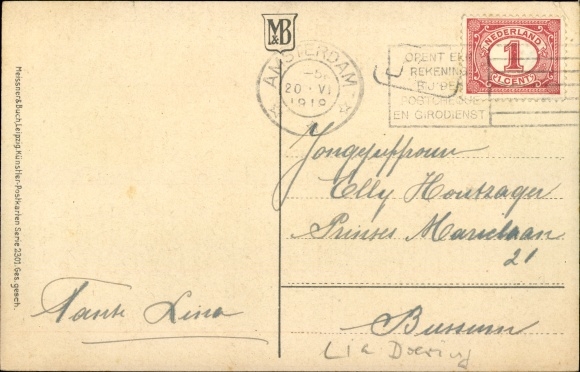 Meissner & Buch, Leipzig, Künstler-Postkarten Serie 2301. Ges. gesch.
M&B
AMSTERDAM
20 VI
1918
OPENT EEN
REKENING
BIJ DE
POSTCHEQUE
EN GIRODIENST
NEDERLAND
1
1 CENT
Jongejuffrouw
Elly Houtzager
Prinses Marielaan
21
Bussum
Tante Lina
Lia Doering